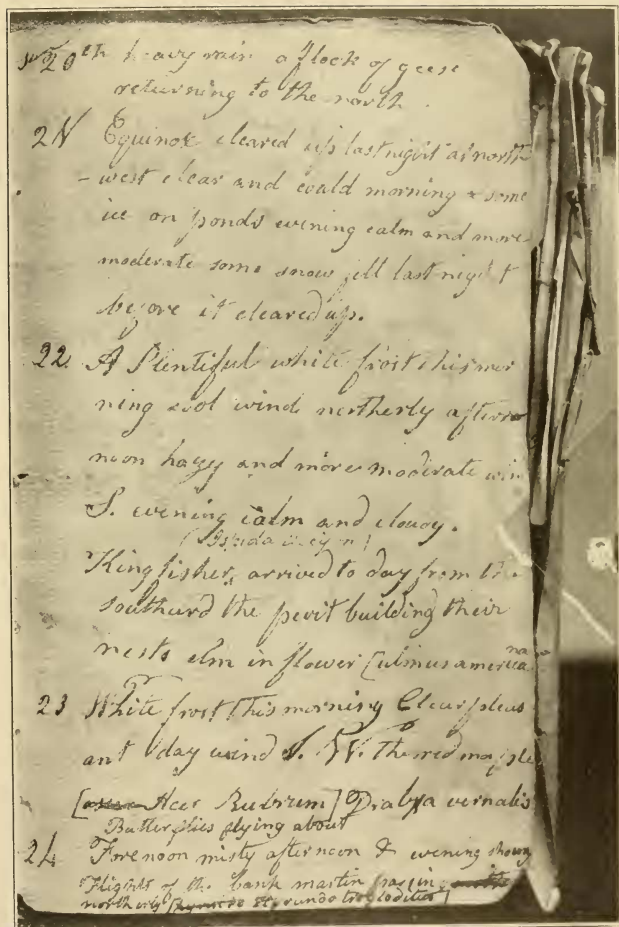 20th heavy rain a flock of geese
returning to the north.
Equinox cleared up last night at north
-west clear and could morning & some
ice on ponds evening calm and more
moderate some snow fell last night
before it cleared up.
22 A Plentiful white frost this mor
ning cool wind northerly after
noon hazy and more moderate win
S. evening calm and cloudy.
Kingfisher, arrived to day from the
southard the pevit building their
nests elm in flower [ulmus america
na
23 White frost this morning Clear pleas
ant day wind S. W. the red maple
[Acer Rubrum] Draba vernalis
Butterflies flying about
24 Forenoon misty afternoon & evening showy
Flights of the bank martin
northerly